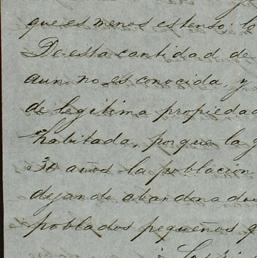 que es menos estenso. lo
De esta cantidad de
aun no es conocida, y
de legítima propiedad
habitada, porque la g
30 años la poblacion
dejando abandonado
poblados pequeños q